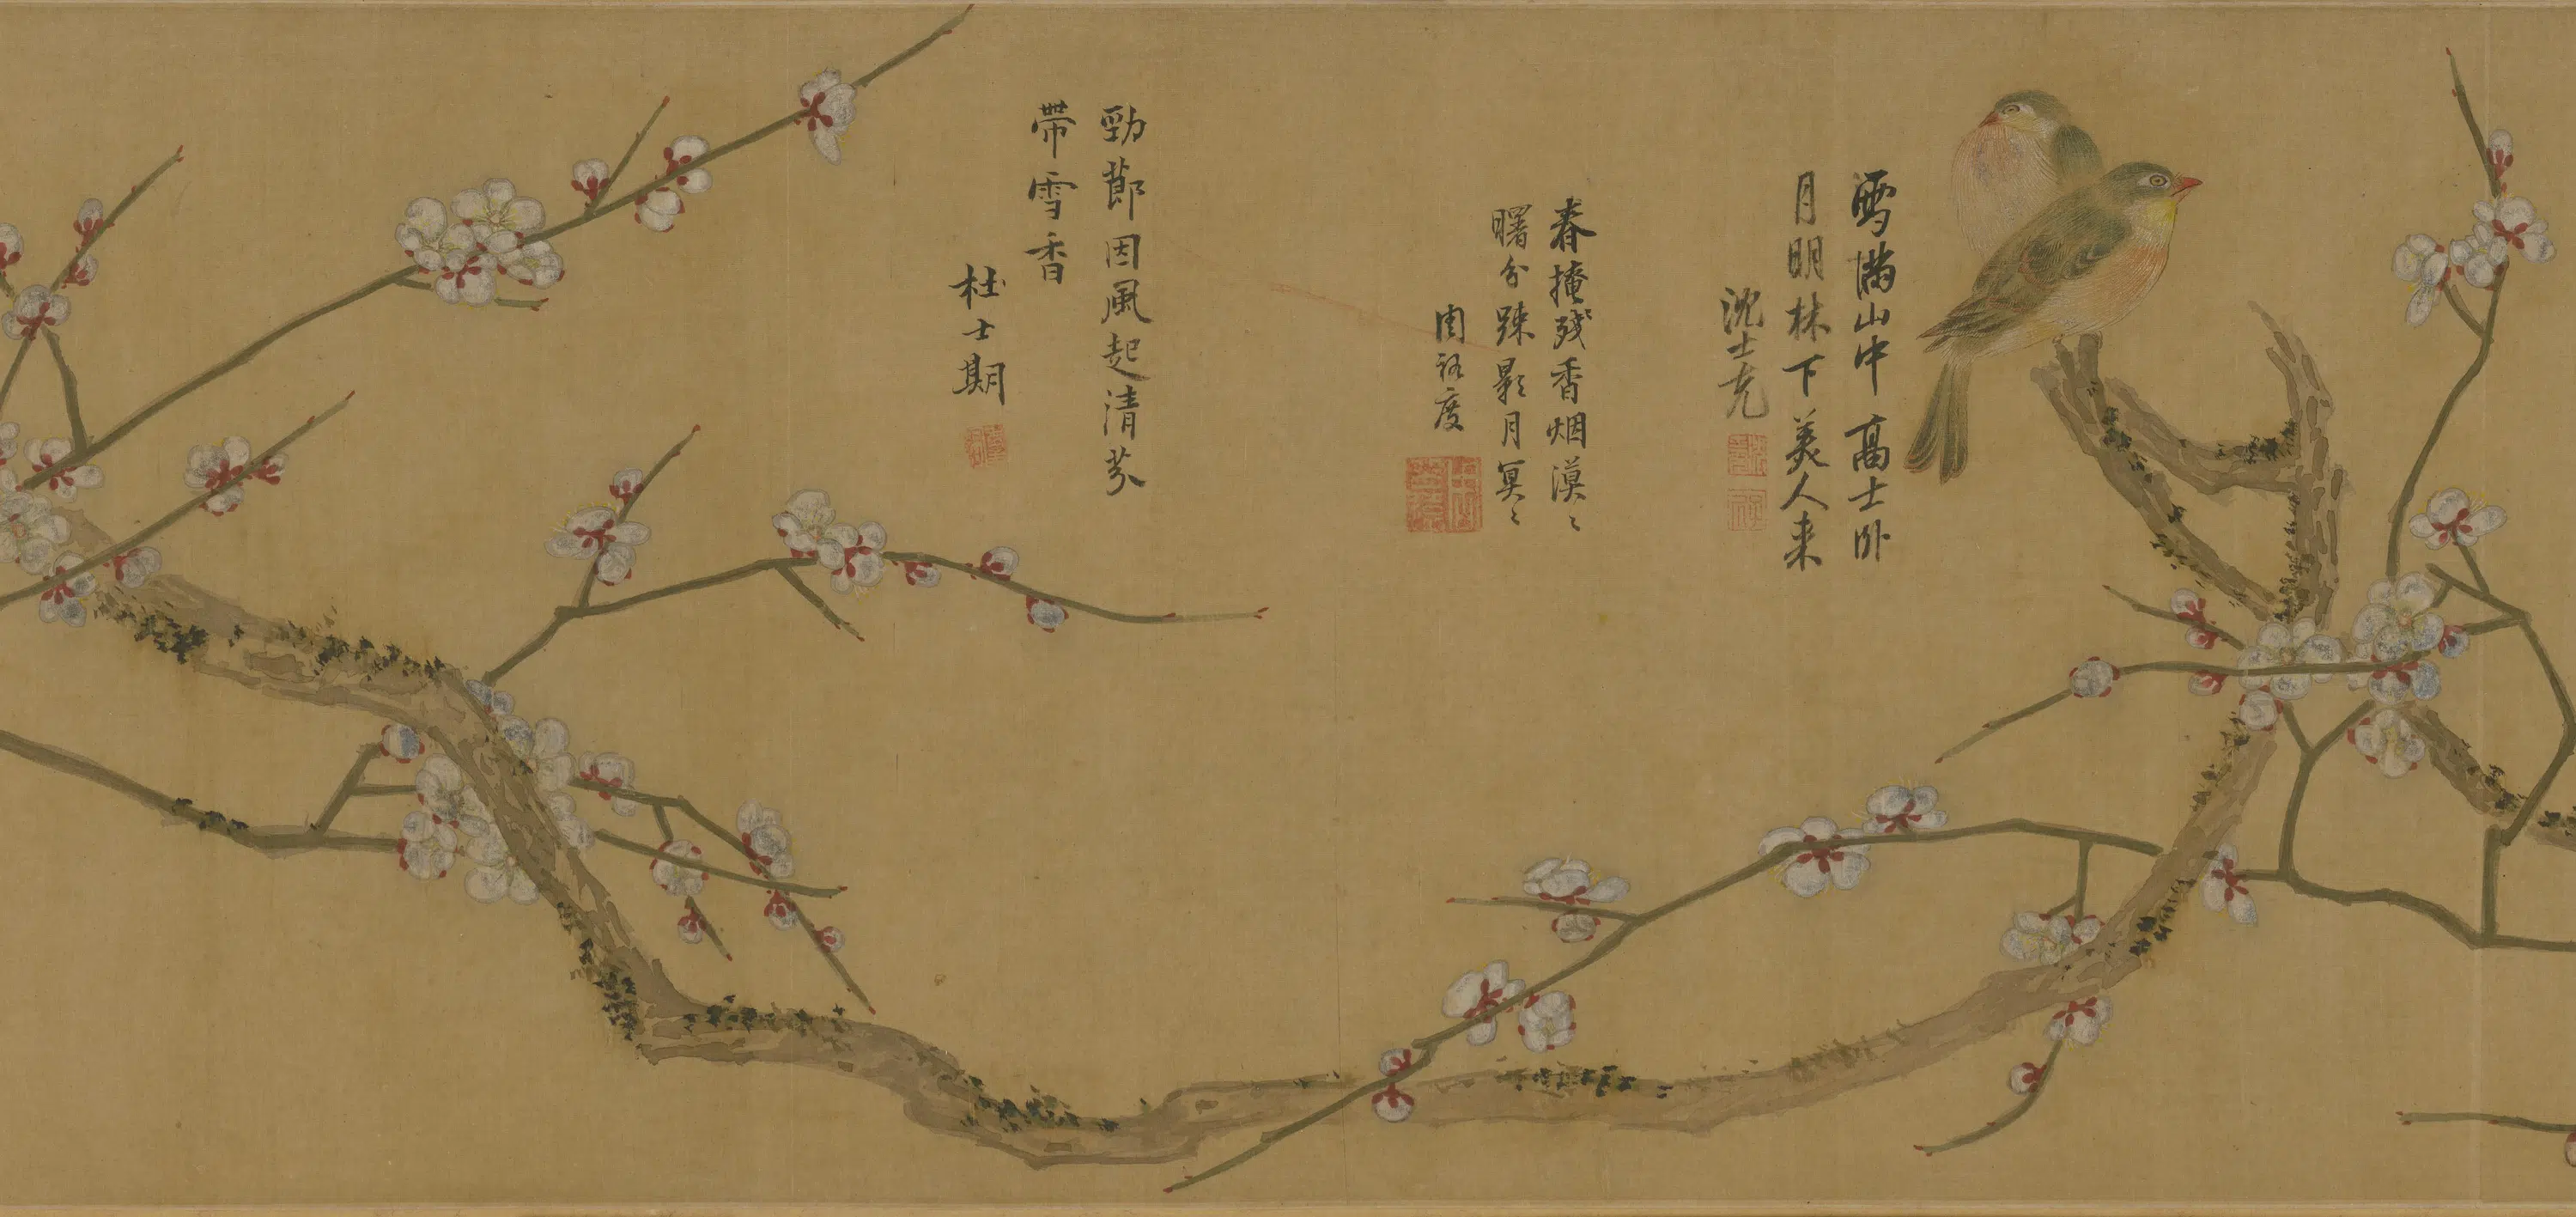 雪滿山中高士卧
月明林下美人来
沈士充
春掩殘香烟漠〻
曙分疎影月冥〻
周裕度
勁節因風起清芬
帶雪香
杜士期